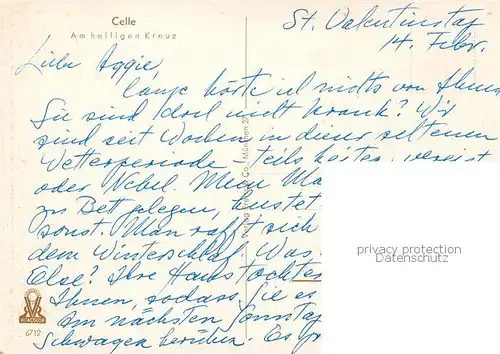 Celle
Am heiligen Kreuz
St. Valentinstag
14. Febr.
Liebe Aggie,
lange hörte ich nichts von Ihnen
Sie sind doch nicht krank? Wir
sind seit Wochen in dieser seltenen
Wetterperiode - teils
oder Nebel. Mein
zu Bett gelegen, hustet
sonst. Man rafft sich
dem Winterschlaf Was
Else? Ihre Haustochter
Ihnen, sodass Sie es
Am nächsten Sonntag
Schwager
privacy protection
delcampe.net
6712